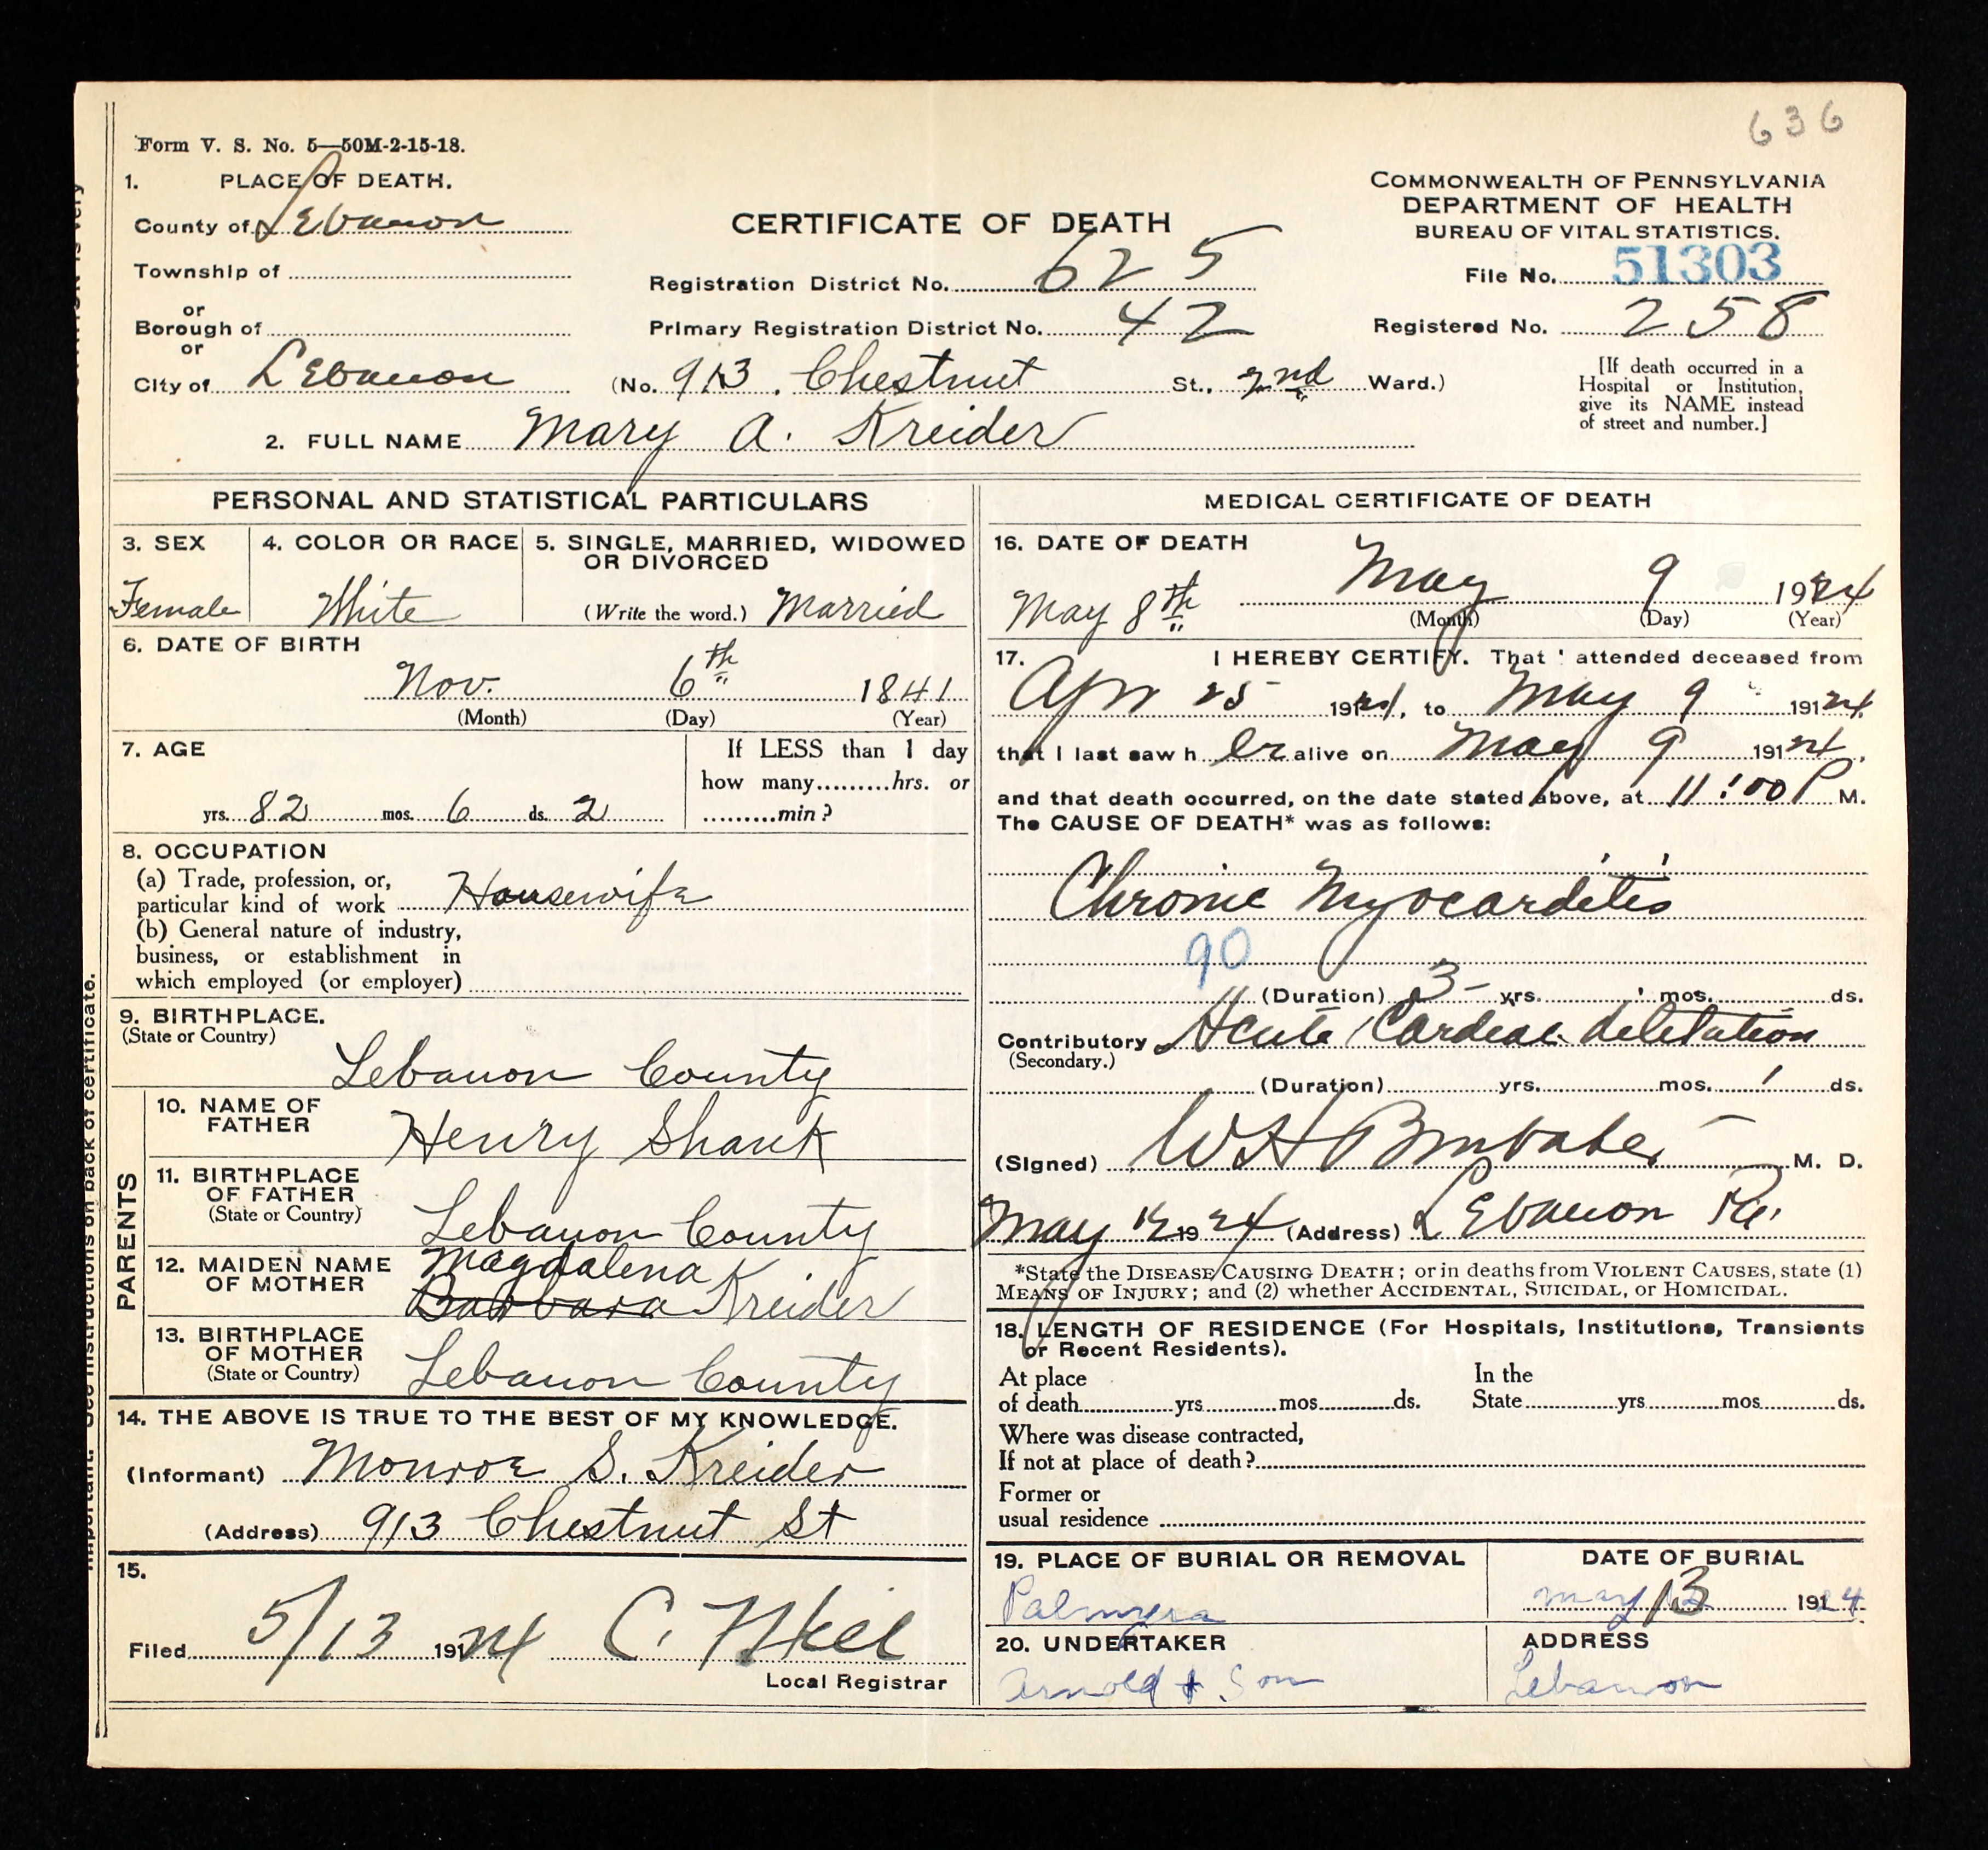 636
Form V. S. No. 5—50M-2-15-18.
1. PLACE OF DEATH.
County of Lebanon
Township of
or
Borough of
or
City of Lebanon
CERTIFICATE OF DEATH
Registration District No. 625
Primary Registration District No. 42
(No. 913. Chestnut St., 2nd Ward.)
COMMONWEALTH OF PENNSYLVANIA
DEPARTMENT OF HEALTH
BUREAU OF VITAL STATISTICS.
File No. 51303
Registered No. 258
[If death occurred in a
Hospital or Institution,
give its NAME instead
of street and number.]
2. FULL NAME Mary A. Kreider
PERSONAL AND STATISTICAL PARTICULARS
3. SEX
Female
4. COLOR OR RACE
White
5. SINGLE, MARRIED, WIDOWED
OR DIVORCED
(Write the word.) Married
6. DATE OF BIRTH
Nov. 6th 1841
(Month) (Day) (Year)
7. AGE
yrs. 82 mos. 6 ds. 2
If LESS than 1 day
how many.........hrs. or
.........min?
8. OCCUPATION
(a) Trade, profession, or,
particular kind of work Housewife
(b) General nature of industry,
business, or establishment in
which employed (or employer)
9. BIRTHPLACE.
(State or Country)
Lebanon County
PARENTS
10. NAME OF
FATHER
Henry Shank
11. BIRTHPLACE
OF FATHER
(State or Country)
Lebanon County
12. MAIDEN NAME
OF MOTHER
Magdalena
Barbara Kreider
13. BIRTHPLACE
OF MOTHER
(State or Country)
Lebanon County
14. THE ABOVE IS TRUE TO THE BEST OF MY KNOWLEDGE.
(Informant) Monroe S. Kreider
(Address) 913 Chestnut St
15.
Filed 5/13 19124 C.
Local Registrar
MEDICAL CERTIFICATE OF DEATH
16. DATE OF DEATH
May 8th May 9 1924
(Month) (Day) (Year)
17. I HEREBY CERTIFY. That attended deceased from
Apr 25 1924, to May 9 19124,
that I last saw h er alive on May 9 19124,
and that death occurred, on the date stated above, at 11:00 P M.
The CAUSE OF DEATH* was as follows:
Chronic Myocarditis
90
(Duration) 3 yrs. mos. ds.
Contributory Acute Cardiac diletation
(Secondary.)
(Duration) yrs. mos. 1 ds.
(Signed) W H M. D.
May 12 1924 (Address) Lebanon Pa.
*State the DISEASE CAUSING DEATH; or in deaths from VIOLENT CAUSES, state (1)
MEANS OF INJURY; and (2) whether ACCIDENTAL, SUICIDAL, or HOMICIDAL.
18. LENGTH OF RESIDENCE (For Hospitals, Institutions, Transients
or Recent Residents).
At place
of death yrs mos ds.
In the
State yrs mos ds.
Where was disease contracted,
If not at place of death?
Former or
usual residence
19. PLACE OF BURIAL OR REMOVAL
Palmyra
DATE OF BURIAL
May 13 19124
20. UNDERTAKER
Arnold + Son
ADDRESS
Lebanon
important. See instructions on back of certificate.